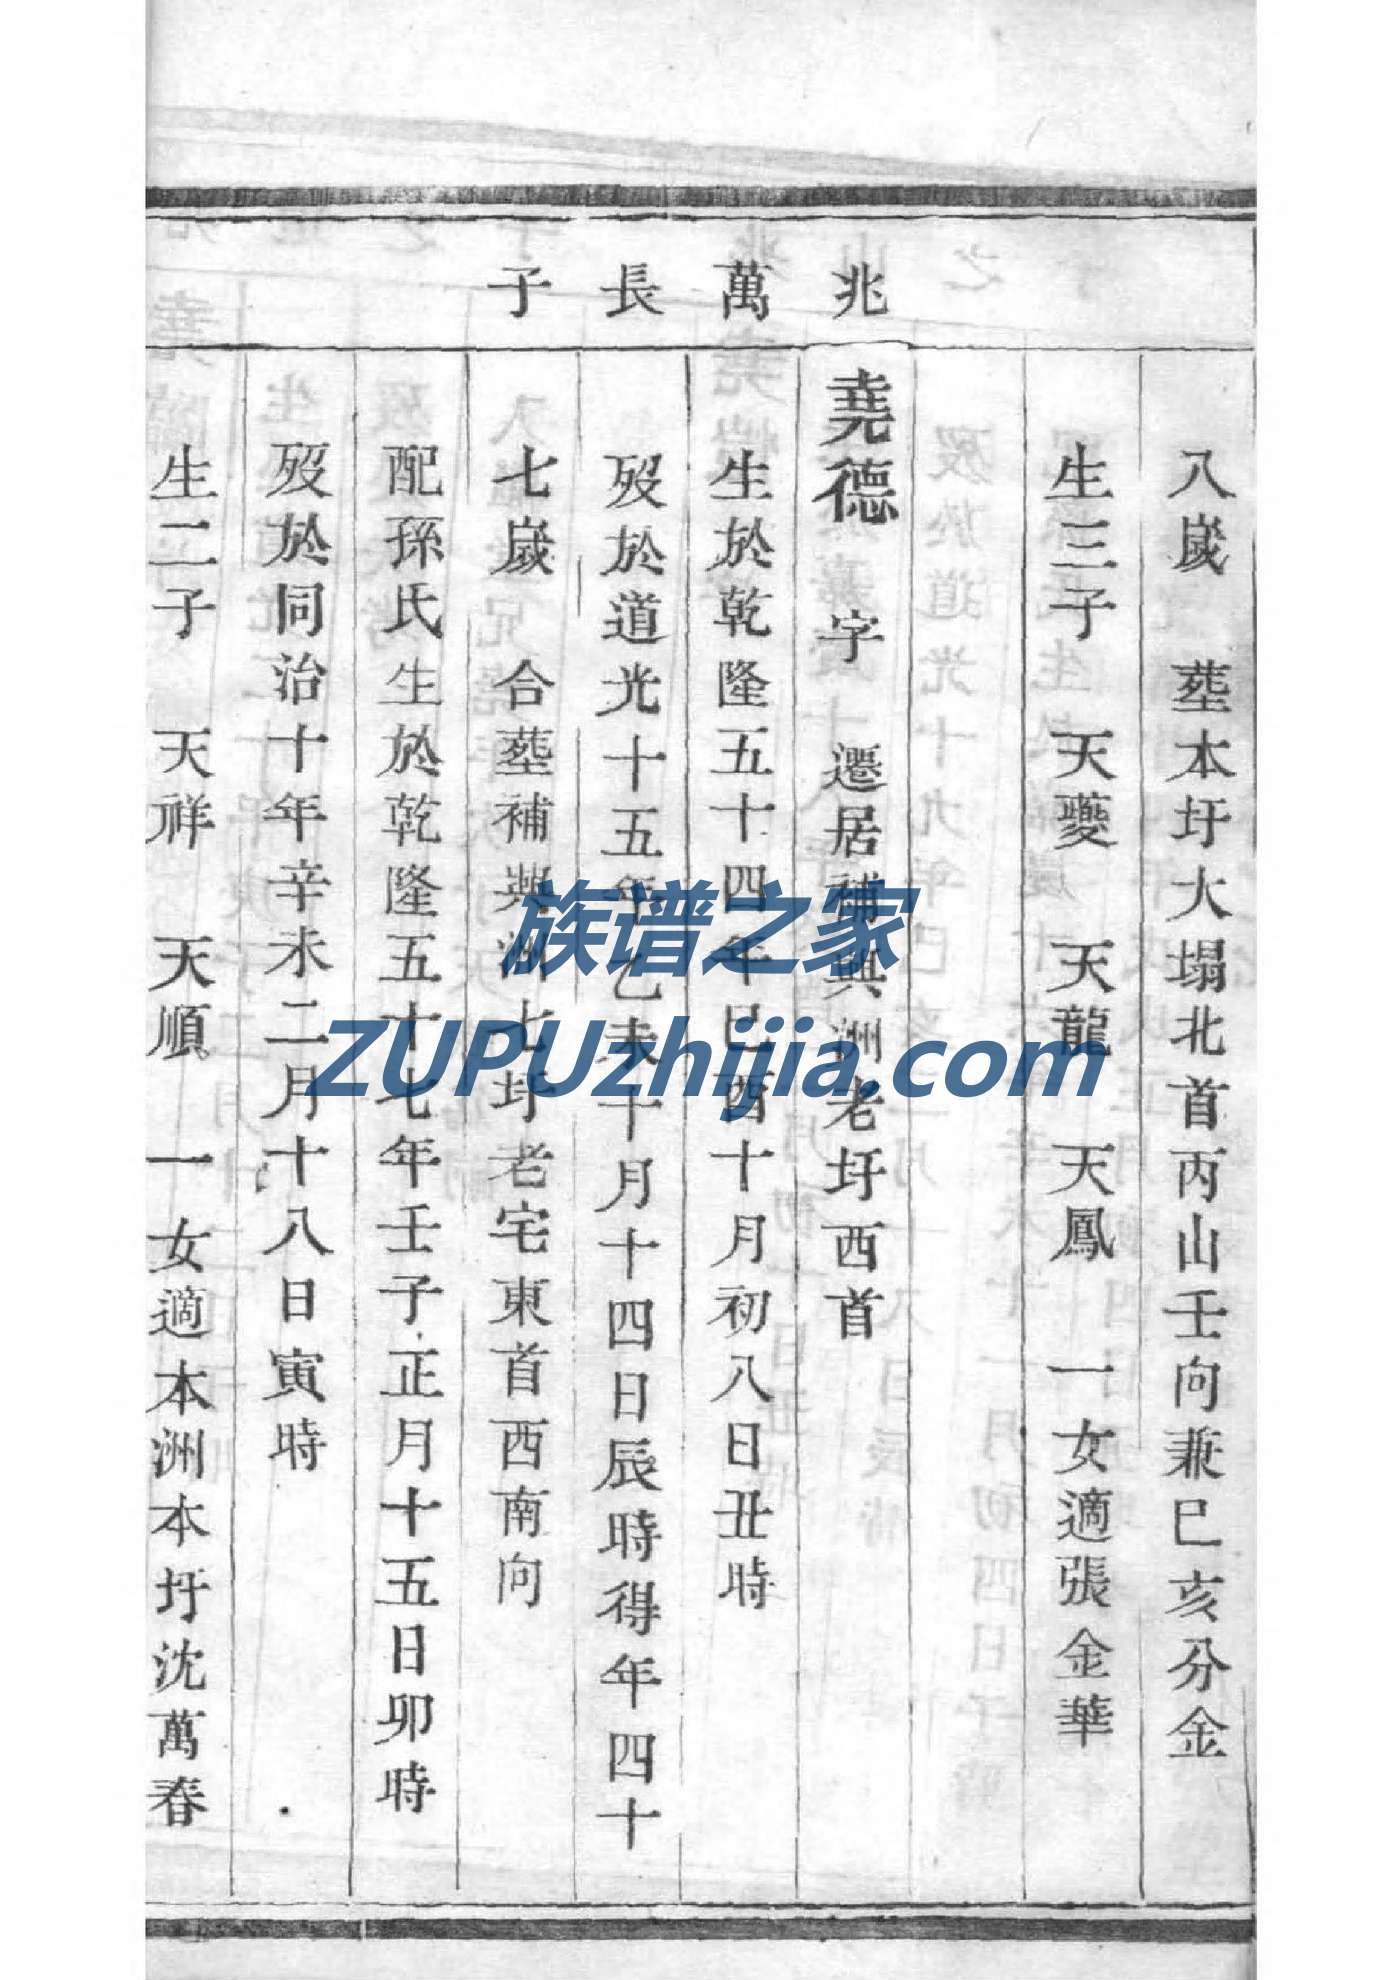 兆萬長子
八歲 塟本圩大塌北首丙山壬向兼巳亥分金
生三子 天夔 天龍 天鳳 一女適張金華
堯德 字 遷居補興洲老圩西首
生於乾隆五十四年巳酉十月初八日丑時
歿於道光十五年乙未十月十四日辰時得年四十
七歲 合塟補興洲七圩老宅東首西南向
配孫氏生於乾隆五十七年壬子正月十五日卯時
歿於同治十年辛未二月十八日寅時
生二子 天祥 天順 一女適本洲本圩沈萬春
族谱之家
ZUPUzhijia.com